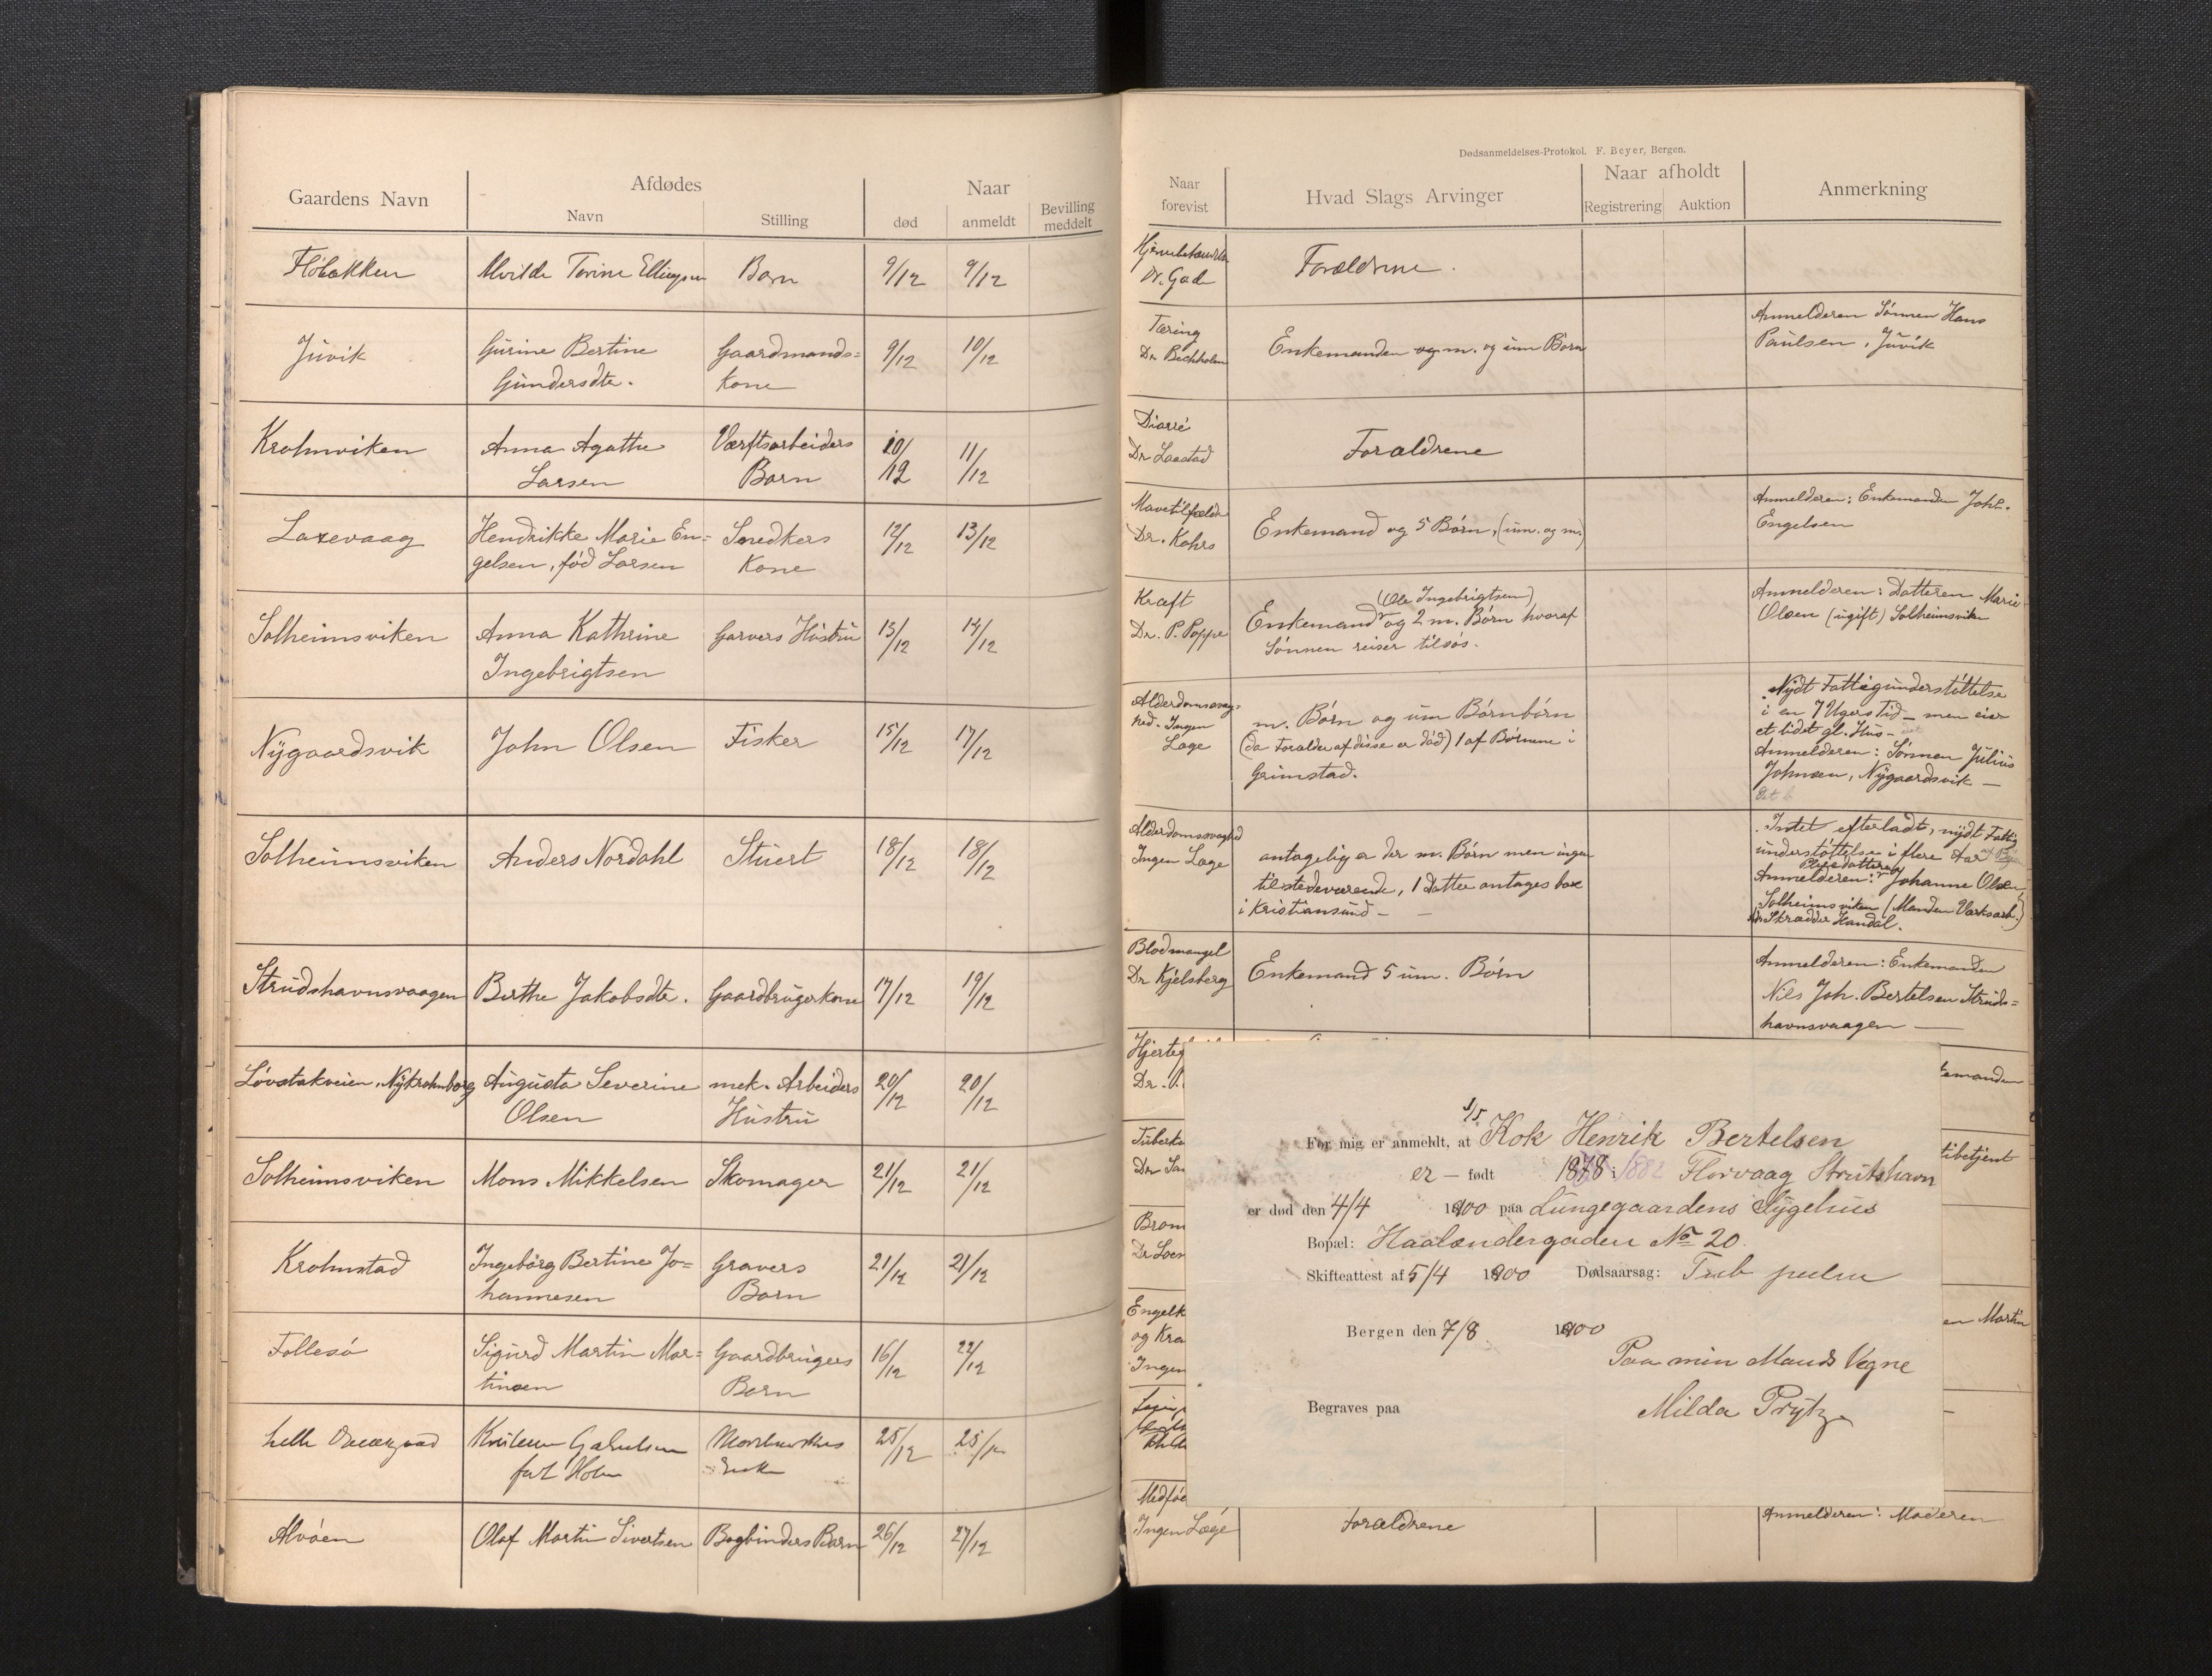 Gaardens Navn
Afdødes
Navn
Stilling
Naar
død
anmeldt
Bevilling
meddelt
Alvilde Torine Ellingsen
Barn
9/12
9/12
Juvik
Gurine Bertine
Gundersdtr.
Gaardmands=
kone
9/12
10/12
Krohnviken
Anna Agathe
Larsen
Værftsarbeiders
Barn
10/12
11/12
Laxevaag
Hendrikke Marie En=
gelsen, fød Larsen
Snedkers
Kone
12/12
13/12
Solheimsviken
Anna Kathrine
Ingebrigtsen
Garvers Hustru
13/12
14/12
Nygaardsvik
John Olsen
Fisker
15/12
17/12
Solheimsviken
Anders Nordahl
Stuert
18/12
18/12
Strudshavnsvaagen
Berthe Jakobsdtr.
Gaardbrugerkone
17/12
19/12
Løvstakveien, Nykrohnborg
Augusta Severine
Olsen
mek. Arbeiders
Hustru
20/12
20/12
Solheimsviken
Mons Mikkelsen
Skomager
21/12
21/12
Krohnstad
Ingebørg Bertine Jo=
hannesen
Gravers
Barn
21/12
21/12
Follesø
Sigurd Martin Mar=
tinsen
Gaardbrugers
Barn
16/12
22/12
25/12
Alvøen
Olaf Martin Sivertsen
Bogbinders Barn
26/12
27/12
Dødsanmeldelses-Protokol. F. Beyer, Bergen.
Naar
forevist
Hvad Slags Arvinger
Naar afholdt
Registrering
Auktion
Anmerkning
Dr. Gade
Forældrene.
Tæring
Enkemanden og m. og um Børn
Anmelderen Sønnen Hans
Paulsen, Juvik
Diarré
Forældrene
Mavetilfælde
Dr. Kahrs
Enkemand og 5 Børn, (um. og m.)
Anmelderen: Enkemanden Joh.
Engelsen
Kræft
Dr. P. Poppe
(Ole Ingebrigtsen)
Enkemand og 2 m. Børn hvoraf
Sønnen reiser tilsøs.
Anmelderen: Datteren Marie
Olsen (ugift) Solheimsviken
Alderdomssvag=
hed. Ingen
Læge
m. Børn og um Børnbørn
(da Forældre af disse er død) 1 af Børnene i
Grimstad.
Nydt Fattigunderstøttelse
i en 7 Ugers Tid – men eier
et lidet gl. Hus –
Anmelderen: Sønnen Julius
Johnsen, Nygaardsvik –
Alderdomssvaghed
Ingen Læge
antagelig er der m. Børn men ingen
tilstedeværende, 1 Datter antages boe
i Kristiansund –
Intet efterladt, nydt Fattig
understøttelse i flere Aar
Pleiedatteren
Anmelderen: Johanne Olsen,
Solheimsviken (Manden Værksarb.)
Skrædder Handal.
Blodmangel
Dr Kjelsberg
Enkemand 5 um. Børn
Anmelderen: Enkemanden
Nils Joh. Bertelsen Struds=
havnsvaagen –
emanden
tibetjent
en Martin
Ingen
Ingen Læge
Forældrene
Anmelderen: Moderen
1/5
For mig er anmeldt, at Kok Henrik Bertelsen
er – født 1878 i 1882 Florvaag Strutshavn
er død den 4/4 1900 paa Lungegaardens Sygehus
Bopæl: Haalandergaden No 20
Skifteattest af 5/4 1900 Dødsaarsag: Tub pulm
Bergen den 7/8 1900
Paa min Mands Vegne
Milda Prytz
Begraves paa